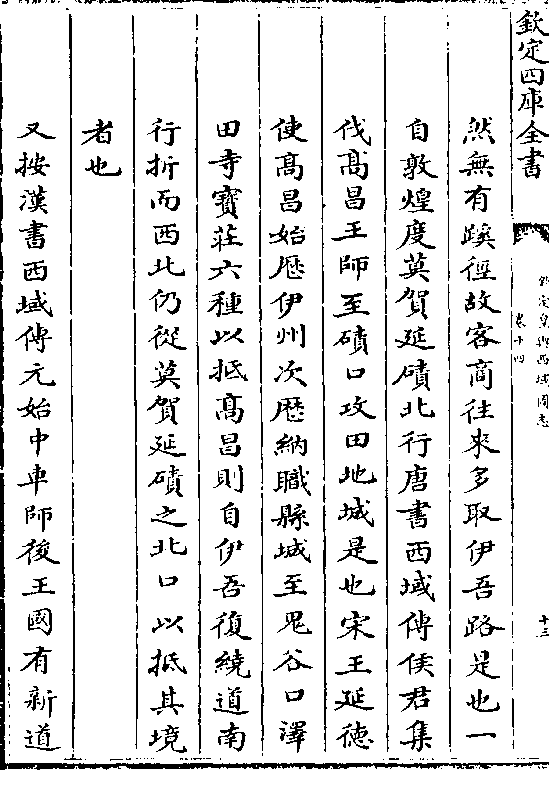 欽定四庫全書
欽定皇輿西域圖志
卷十四
十三
然無有蹊徑故客商往來多取伊吾路是也一
自敦煌度莫賀延磧北行唐書西域傳侯君集
伐髙昌王師至磧口攻田地城是也宋王延徳
使髙昌始歴伊州次歴納職縣城至鬼谷口澤
田寺寶莊六種以抵髙昌則自伊吾復繞道南
行折而西北仍從莫賀延磧之北口以抵其境
者也
又按漢書西域傳元始中車師後王國有新道